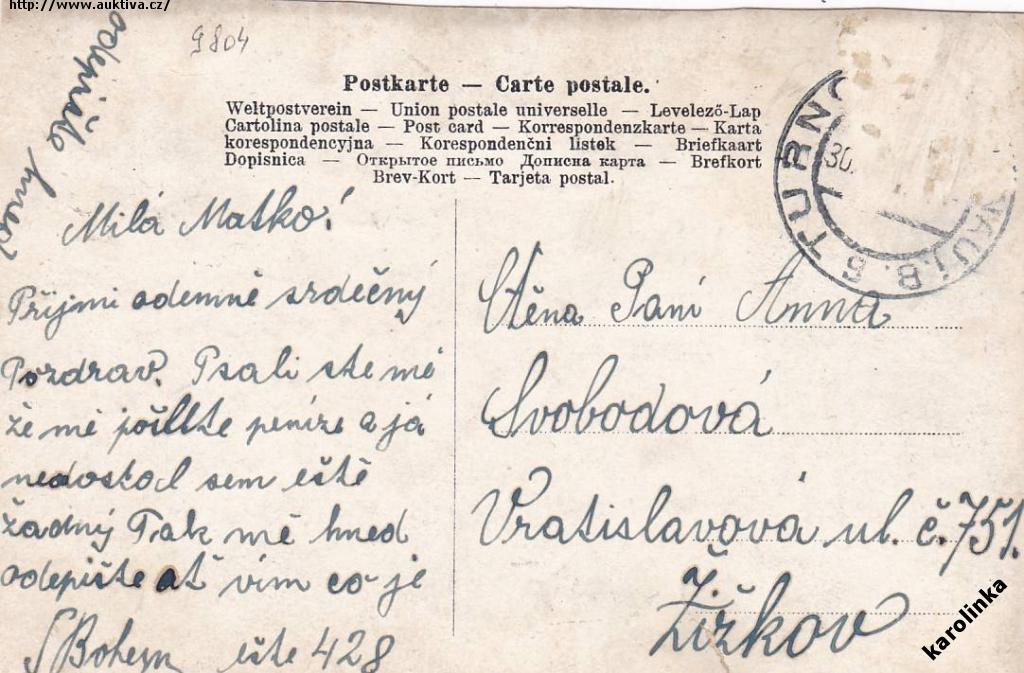 http://www.auktiva.cz/
9804
Postkarte — Carte postale.
Weltpostverein — Union postale universelle — Levelező-Lap
Cartolina postale — Post card — Korrespondenzkarte — Karta
korespondencyjna — Korespondenční listek — Briefkaart
Dopisnica — Открытое письмо Дописна карта — Brefkort
Brev-Kort — Tarjeta postal.
TURNO
30.
B. 5
Milá Matko!
Přijmi odemně srdečný
Pozdrav. Psali ste mě
že mě pošllte peníze a já
nedostal sem eště
žadný Tak mě hned
odepište ať vím co je
S Bohem eště 428
odepište hned
Ctěna Paní Anna
Svobodová
Vratislavová ul. č. 751.
Žižkov
karolinka